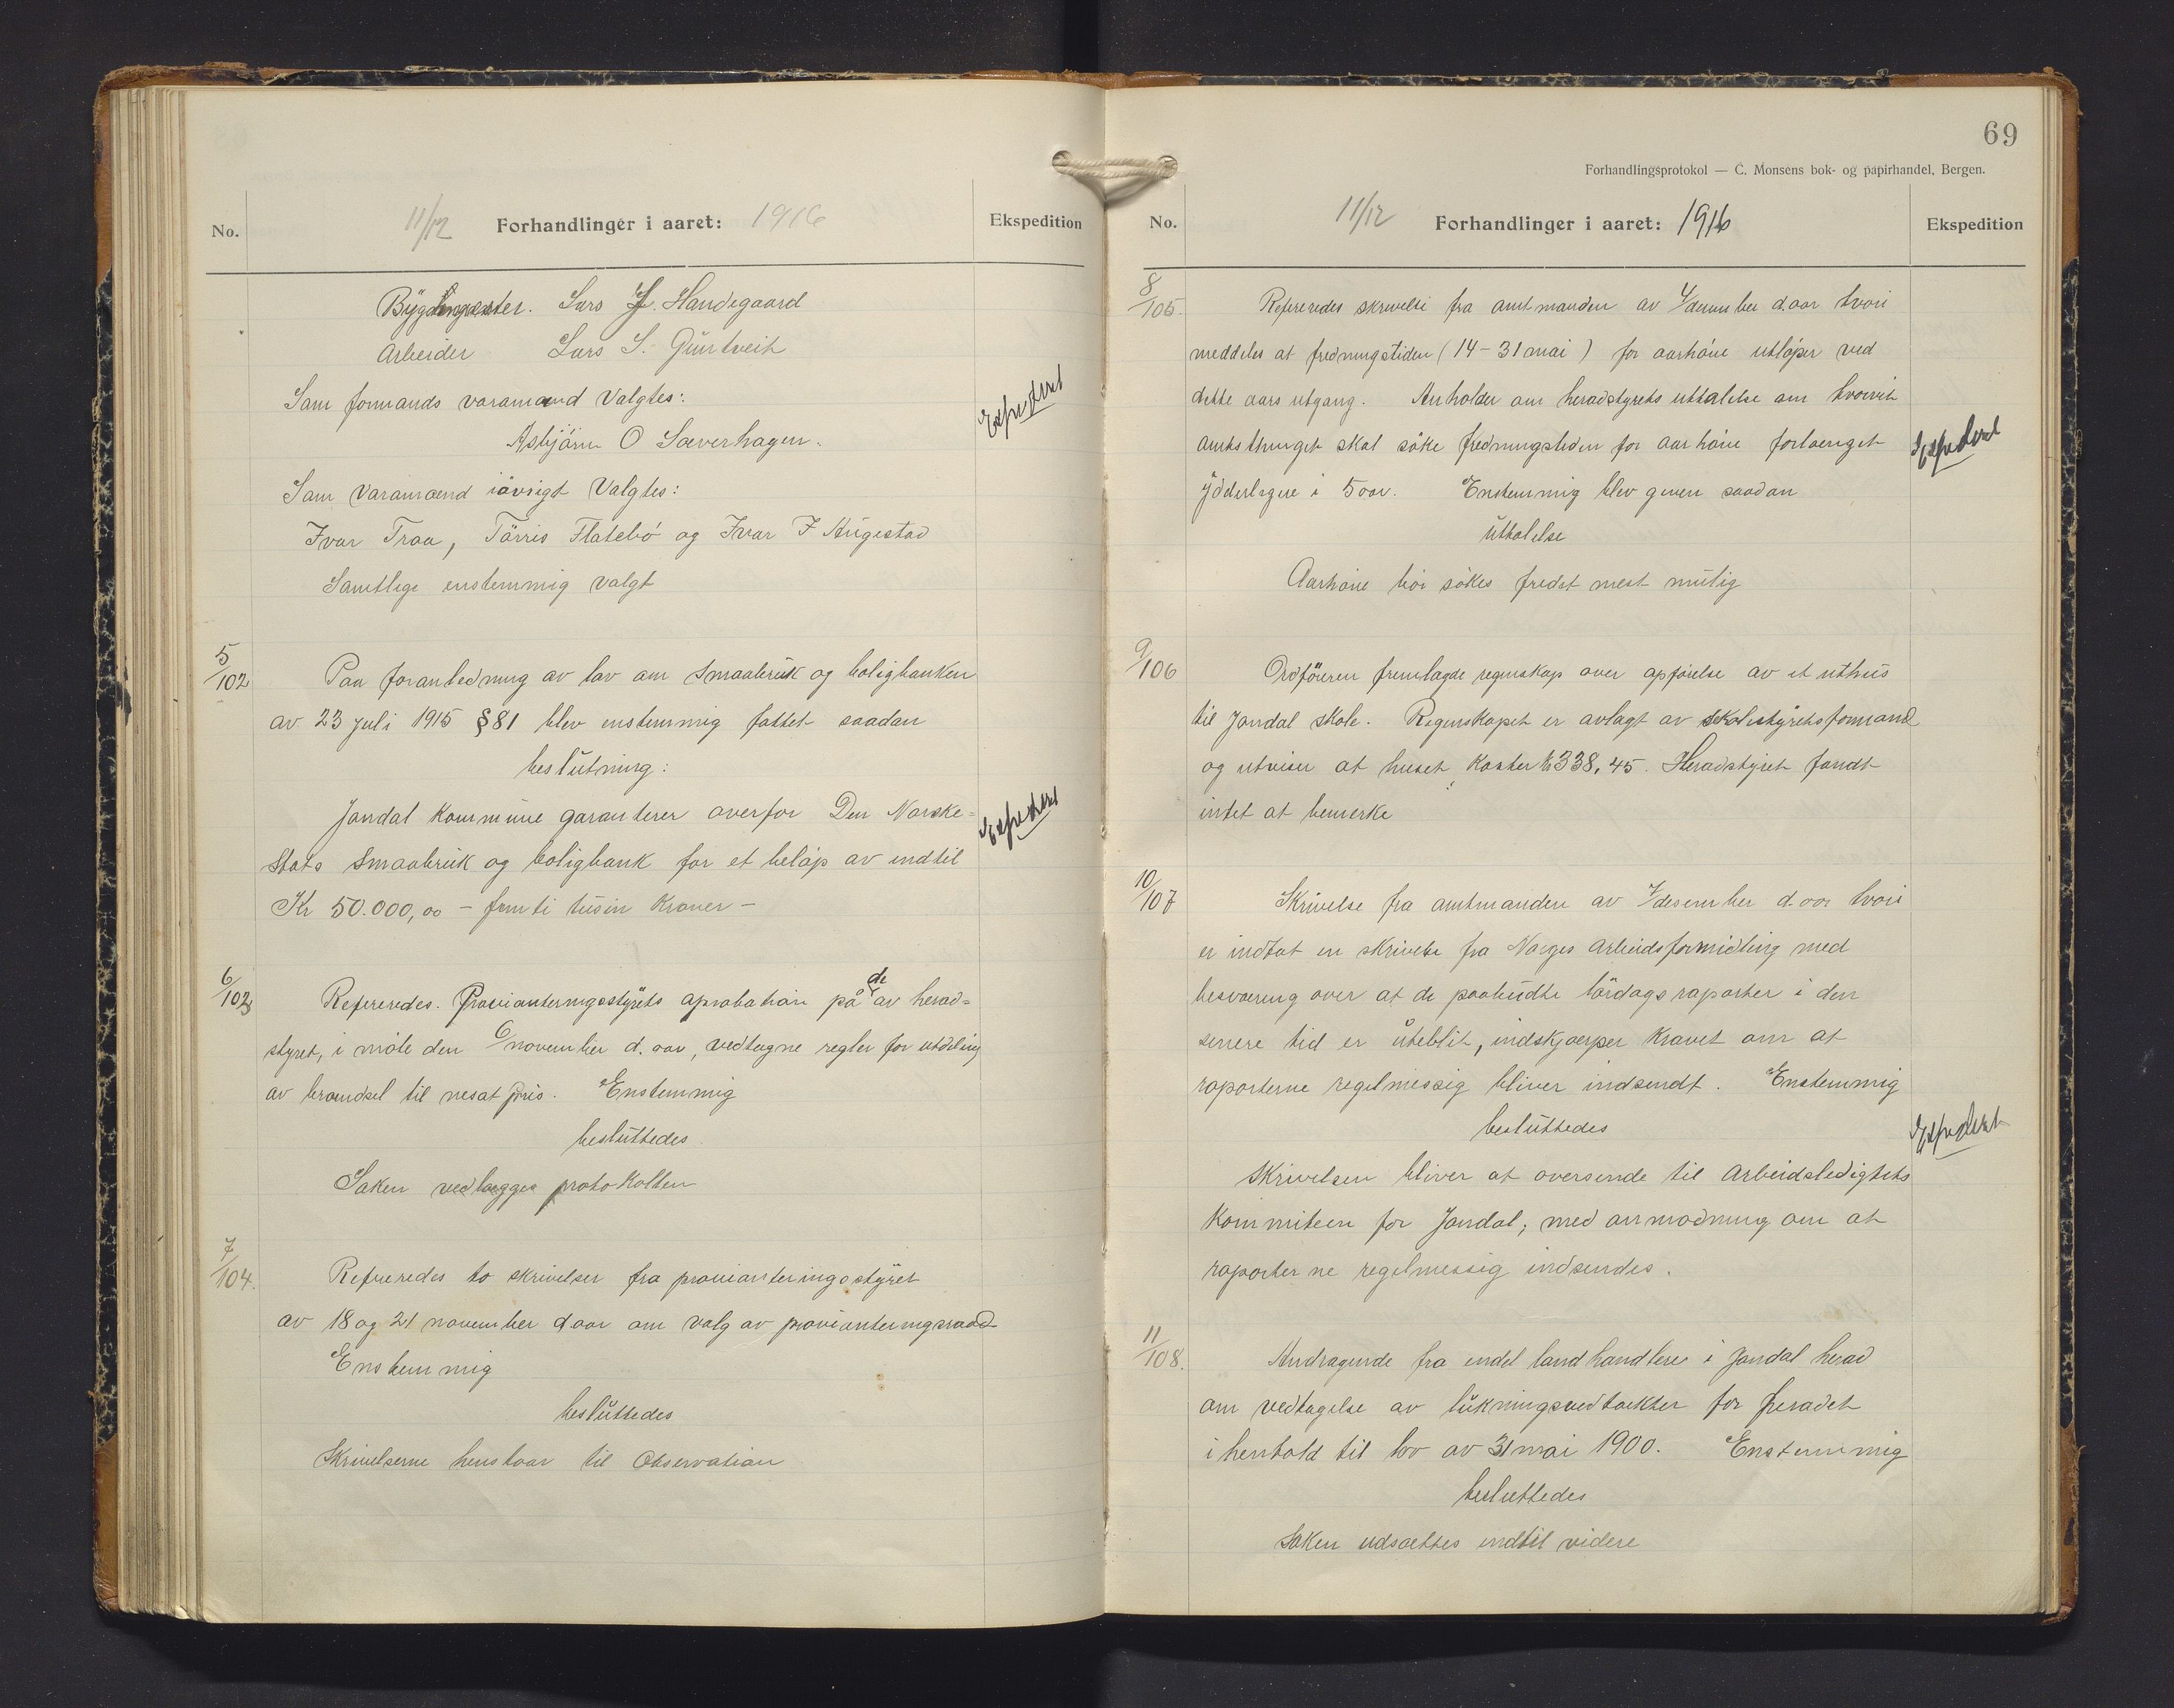 No.
11/12 Forhandlinger i aaret: 1916
Ekspedition
Bygdingester. Lars J. Handegaard
Arbeider Lars S. Guntveit
Som formands varamænd Valgtes:
Asbjörn O Sæverhagen.
Expedert
Som Varamænd iövrigt Valgtes:
Ivar Traa, Törris Flatebö og Ivar I Augestad
Samtlige enstemmig valgt
5/102
Paa foranledning av lov om Smaabruk og boligbanken
av 23 juli 1915 § 81 blev enstemmig fattet saadan
beslutning:
Jondal Kommune garanterer overfor Den Norske=
Stats Smaabruk og boligbank for et belöp av indtil
Expedert
Kr 50.000,00 - femti tusin Kroner -
6/103
Refereredes. Provianteringsstyrets aprobation på de av herad=
styret, i möte den 6/november d. aar, vedtagne regler for utdeling
av brændsel til nesat pris. Enstemmig
besluttedes
Saken vedlægges protokollen
7/104.
Refereredes to skrivelser fra provianteringsstyret
av 18 og 21 november d aar om valg av provianteringsraad
Enstemmig
besluttedes
Skrivelserne henstaar til Observation
69
Forhandlingsprotokol — C. Monsens bok- og papirhandel, Bergen.
No.
11/12 Forhandlinger i aaret: 1916
Ekspedition
8/105.
Refereredes skrivelse fra amtmanden av /desember d.aar hvori
meddeles at fredningstiden (14-31 mai) for aarhöne utlöper ved
dette aars utgang. Anholder om heradstyrets uttalelse om hvorvit
amtsthinget skal söke fredningstiden for aarhöne forlænget
Expedert
yderligere i 5 aar. Enstemmig blev given saadan
uttalelse
Aarhöne bör sökes fredet mest mulig
9/106
Ordföreren fremlagde regnskap over opförelse av et uthus
til Jondal skole. Regnskapet er avlagt av skolestyretsformand
og utviser at huset koster kr 338,45. Heradstyret fandt
intet at bemerke
10/107
Skrivelse fra amtmanden av /desember d. aar hvori
er indtat en skrivelse fra Norges arbeidsformidling med
besværing over at de paabudte lördags raporter i den
senere tid er uteblit, indskjærper Kravet om at
raporterne regelmessig bliver indsendt. Enstemmig
besluttedes
Expedert
Skrivelsen bliver at oversende til arbeidsledigtets
Kommiteen for Jondal, med anmodning om at
raporterne regelmessig indsendes.
11/108.
Andragende fra endel landhandlere i Jondal herad
om vedtagelse av lukningsvedtækter for heradet
i henhold til lov av 31 mai 1900. Enstemmig
besluttedes
Saken udsættes indtil videre